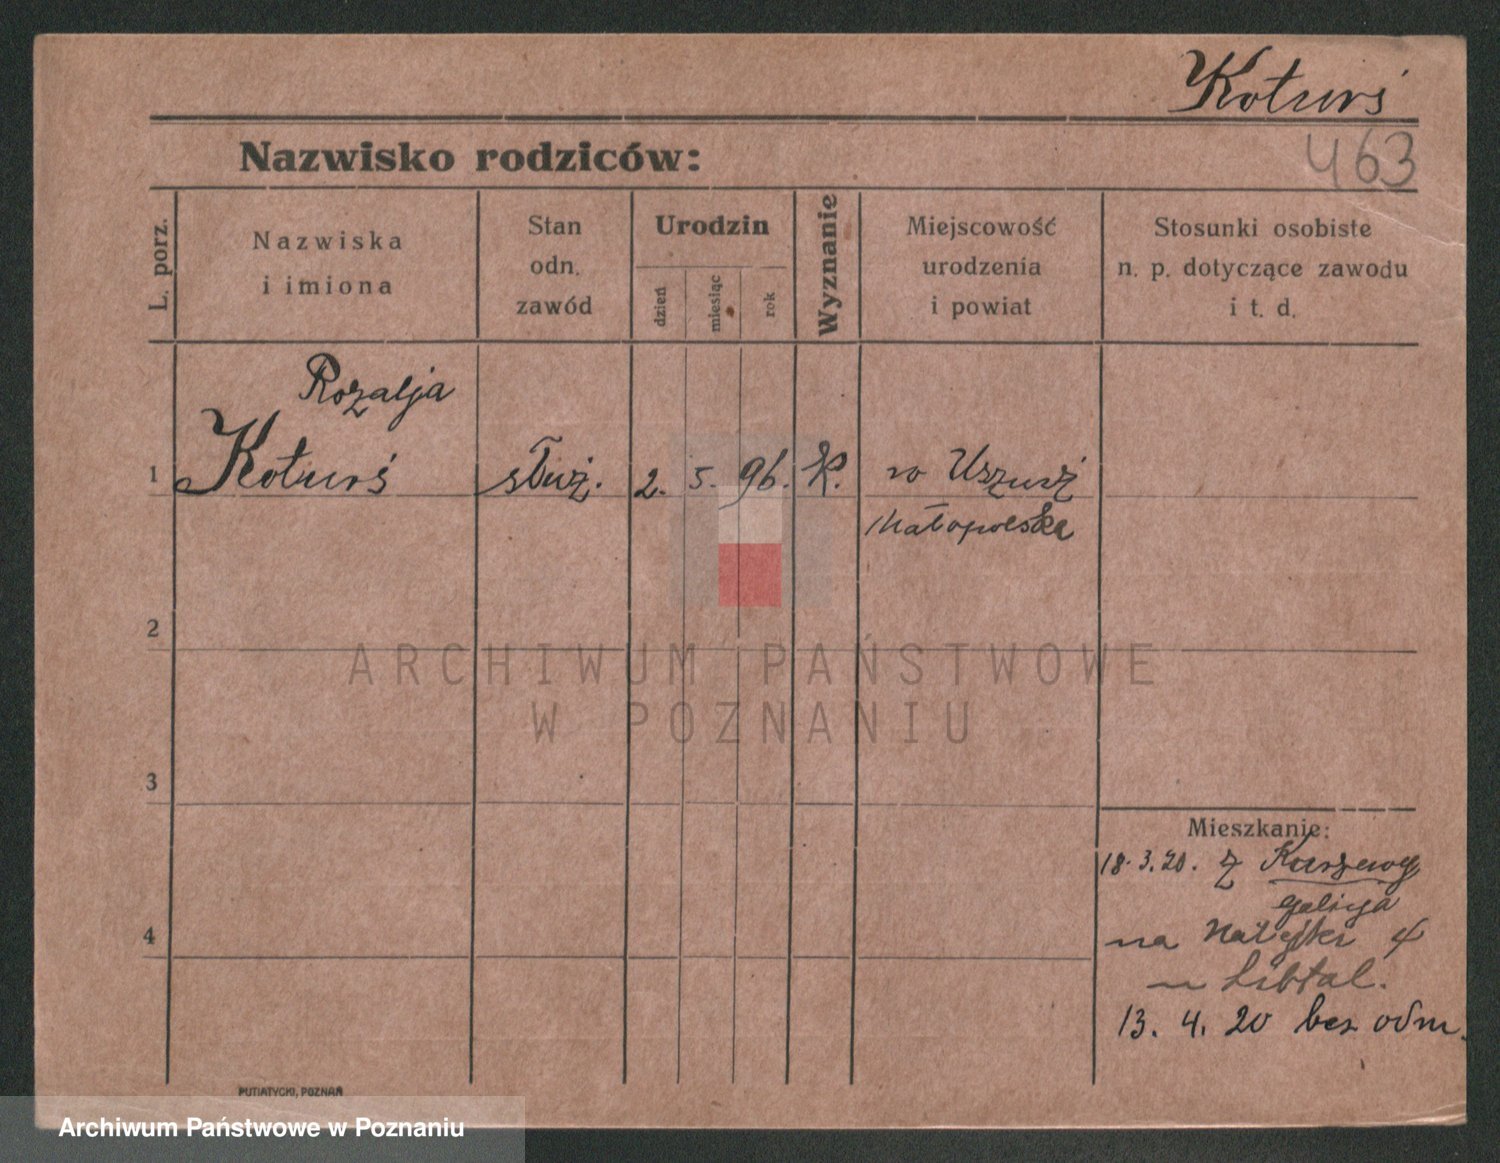 Koturś
463
Nazwisko rodziców:
L. porz.
Nazwiska
i imiona
Stan
odn.
zawód
Urodzin
dzień
miesiąc
rok
Wyznanie
Miejscowość
urodzenia
i powiat
Stosunki osobiste
n. p. dotyczące zawodu
i t. d.
Rozalja
1 Koturś służ. 2. 5. 96. K. w
Małopolska
2
3
4
Mieszkanie:
18.3.20. z
galicja
na 4
u
13. 4. 20 bez odm.
PUTIATYCKI, POZNAŃ
ARCHIWUM PAŃSTWOWE
W POZNANIU
Archiwum Państwowe w Poznaniu